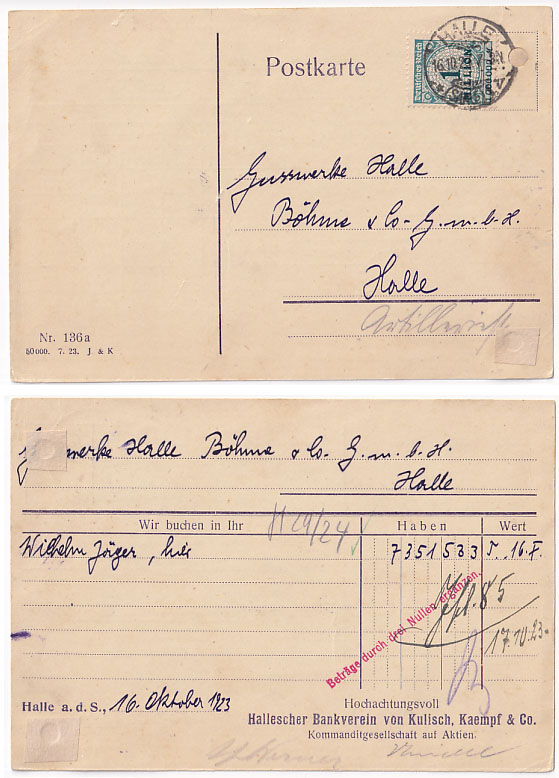 HALLE
16.10.23
Deutsches Reich
1
MILLION
Postkarte
Gusswerke Halle
Böhme & Co. G.m.b.H.
Halle
Artilleriestr.
Nr. 136a
50000. 7. 23. J & K
Gusswerke Halle Böhme & Co. G.m.b.H.
Halle
Wir buchen in Ihr
H 29/24
Haben
Wert
Wilhelm Jäger, hier
7351533
16. X.
85
Beträge durch drei Nullen ergänzen.
17.10.23.
Halle a. d. S., 16. Oktober 1923
Hochachtungsvoll
Hallescher Bankverein von Kulisch, Kaempf & Co.
Kommanditgesellschaft auf Aktien.